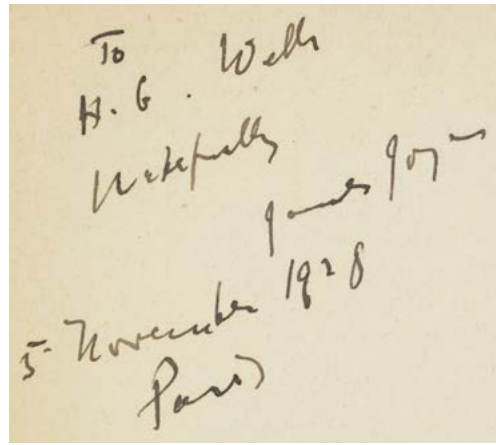 To
H. G. Wells
Gratefully
James Joyce
5 November 1928
Paris